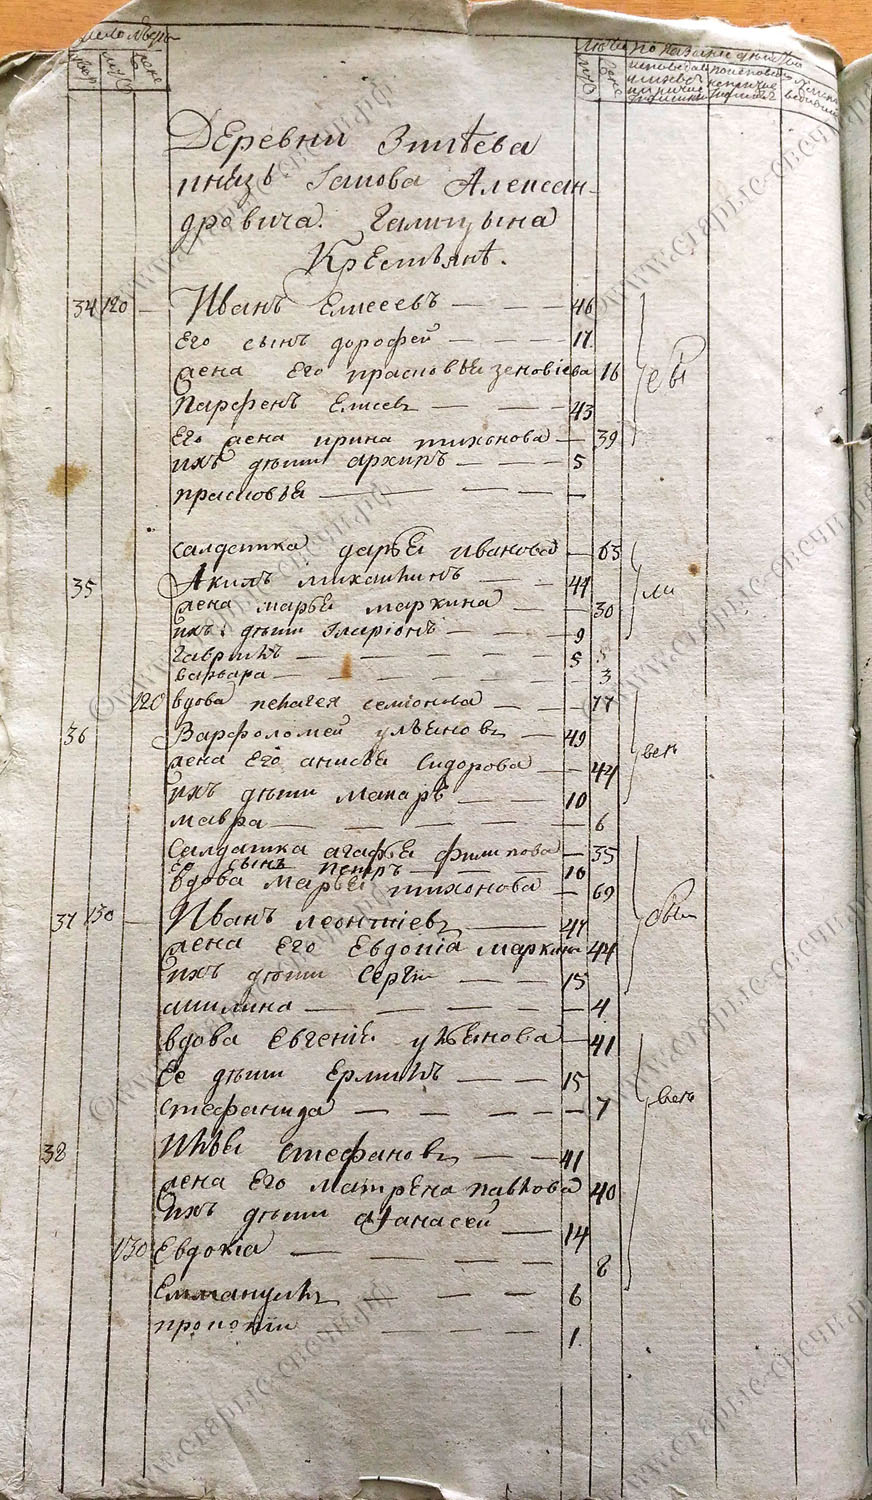 Число
двор. муж. жен.
Лета по
муж. жен.
Деревни Змѣева
князь Іакова Алексан-
дровича Галицына
Крестьянѣ.
34 120 — Иванъ Елисеевъ — 46
Его сынъ дорофей — 17
жена Его прасковья зеновіева 16
Парфенъ Елисеевъ — 43
Его жена ирина тихонова — 39
ихъ дѣти архипъ — 5
прасковья —
салдатка дарья иванова — 63
35 Акимъ михаилинъ — 44
жена марья маркина — 30
ихъ дѣти Іларіонъ — 9
гаврилъ — 5
варвара — 3
120 вдова пелагея семіонова — 77
36 Варфоломей ульяновъ — 49
жена Его анисья Сидорова — 44
ихъ дѣти макаръ — 10
мавра — 6
салдатка агафья филипова — 35
Ее сынъ петръ — 10
вдова марья тихонова — 69
37 130 — Иванъ леонтіевъ — 47
жена Его Евдокіа маркина 44
ихъ дѣти Сергій 15
акилина — 4
вдова Евгенія ульянова — 41
Ее дѣти Ермилъ — 15
стефанида — 7
38 Илья стефановъ — 41
жена Его матрена павлова 40
ихъ дѣти афанасей — 14
130 Евдокіа — 8
Еммануилъ — 6
прокопій — 1
©www.старые-свечи.рф